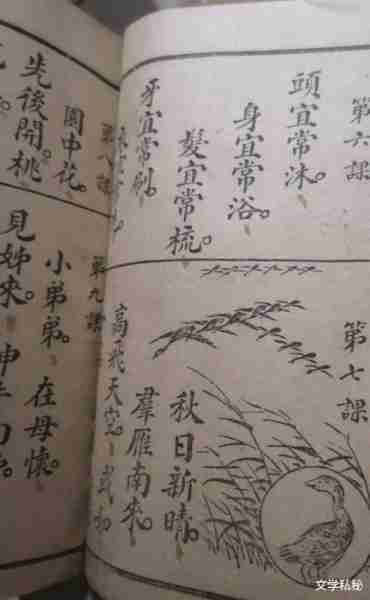 第六課
頭宜常沐。
身宜常浴。
髮宜常梳。
牙宜常刷。
第七課
秋日新晴。
羣雁南來。
高飛天空。
第八課
園中花。
先後開。桃
第九課
小弟弟。在母懷。
見姊來。
文学私秘